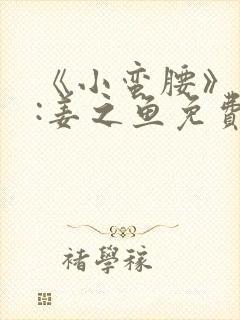 《小蛮腰》
:姜之鱼免費
褚學稼